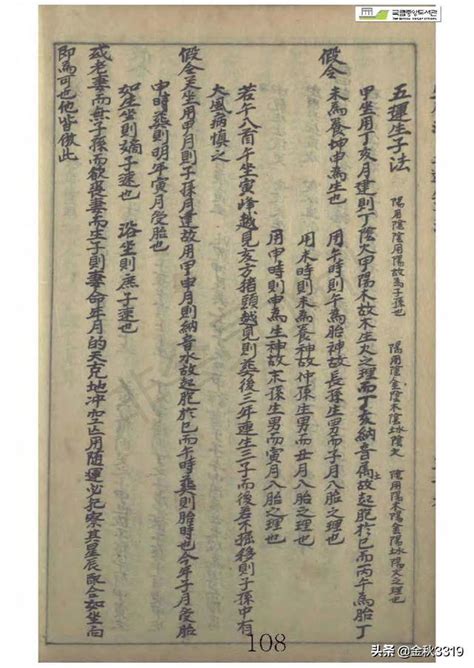 국립중앙도서관
五運生子法 陽用陰陰用陽故為子孫也 陽用陰金陰木陰水陰火 陰用陽木陽金陽水陽火之理也
甲坐用丁亥月建則丁陰火甲陽木故木生火之理而丁亥納音屬土故起胞於巳而丙午為胎丁
假令 未為養坤申為生也 用午時則午為胎神故長孫生男而子月入胎之理也
用未時則未為養神故仲孫生男而丑月入胎之理也
用申時則申為生神故末孫生男而寅月入胎之理也
若午入首午坐寅峰越見亥方猪頭越見則葬後三年連生三子而後若不掘移則子孫中有
大風病慎之
假令癸坐用甲月則子孫月建故用甲申月則納音水故起胞於巳而午時葬則胎時也今年子月受胎
申時葬則明年寅月受胎也
如坐坐則嫡子速也 沿坐則庶子速也
或老妻而無子孫而欲喪妻而生子則妻命年月的天克地冲空亡用隨運必把察其星辰配合如坐向
即為可也他皆倣此
108
头条 @金秋3319